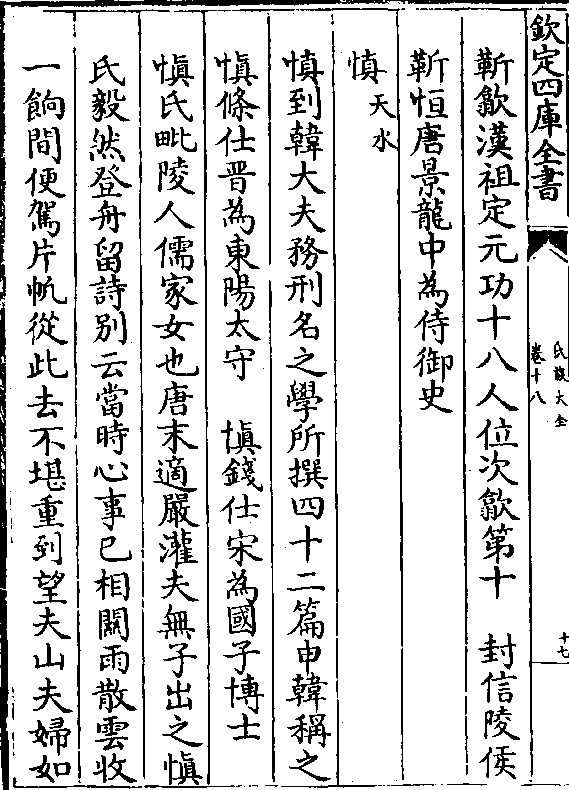 欽定四庫全書
氏族大全
卷十八
十七
靳歙漢祖定元功十八人位次歙第十　封信陵侯
靳恒唐景龍中為侍御史
慎天水
慎到韓大夫務刑名之學所撰四十二篇申韓稱之
慎條仕晋為東陽太守　慎錢仕宋為國子博士
慎氏毗陵人儒家女也唐末適嚴灌夫無子出之慎
氏毅然登舟留詩別云當時心事已相關雨散雲收
一餉間便駕片帆從此去不堪重到望夫山夫婦如